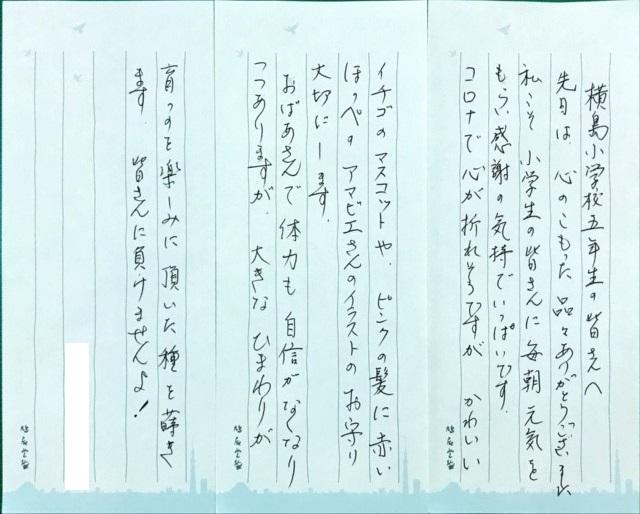 横島小学校五年生の皆さんへ
先日は心のこもった品々ありがとうございました
私こそ小学生の皆さんに毎朝元気を
もらい感謝の気持でいっぱいです.
コロナで心が折れそうですが かわいい
イチゴのマスコットや、ピンクの髪に赤い
ほっぺのアマビエさんのイラストのお守り
大切にします.
おばあさんで体力も自信がなくなり
つつありますが、大きなひまわりが
育つのを楽しみに頂いた種を蒔き
ます. 皆さんに負けませんよ!